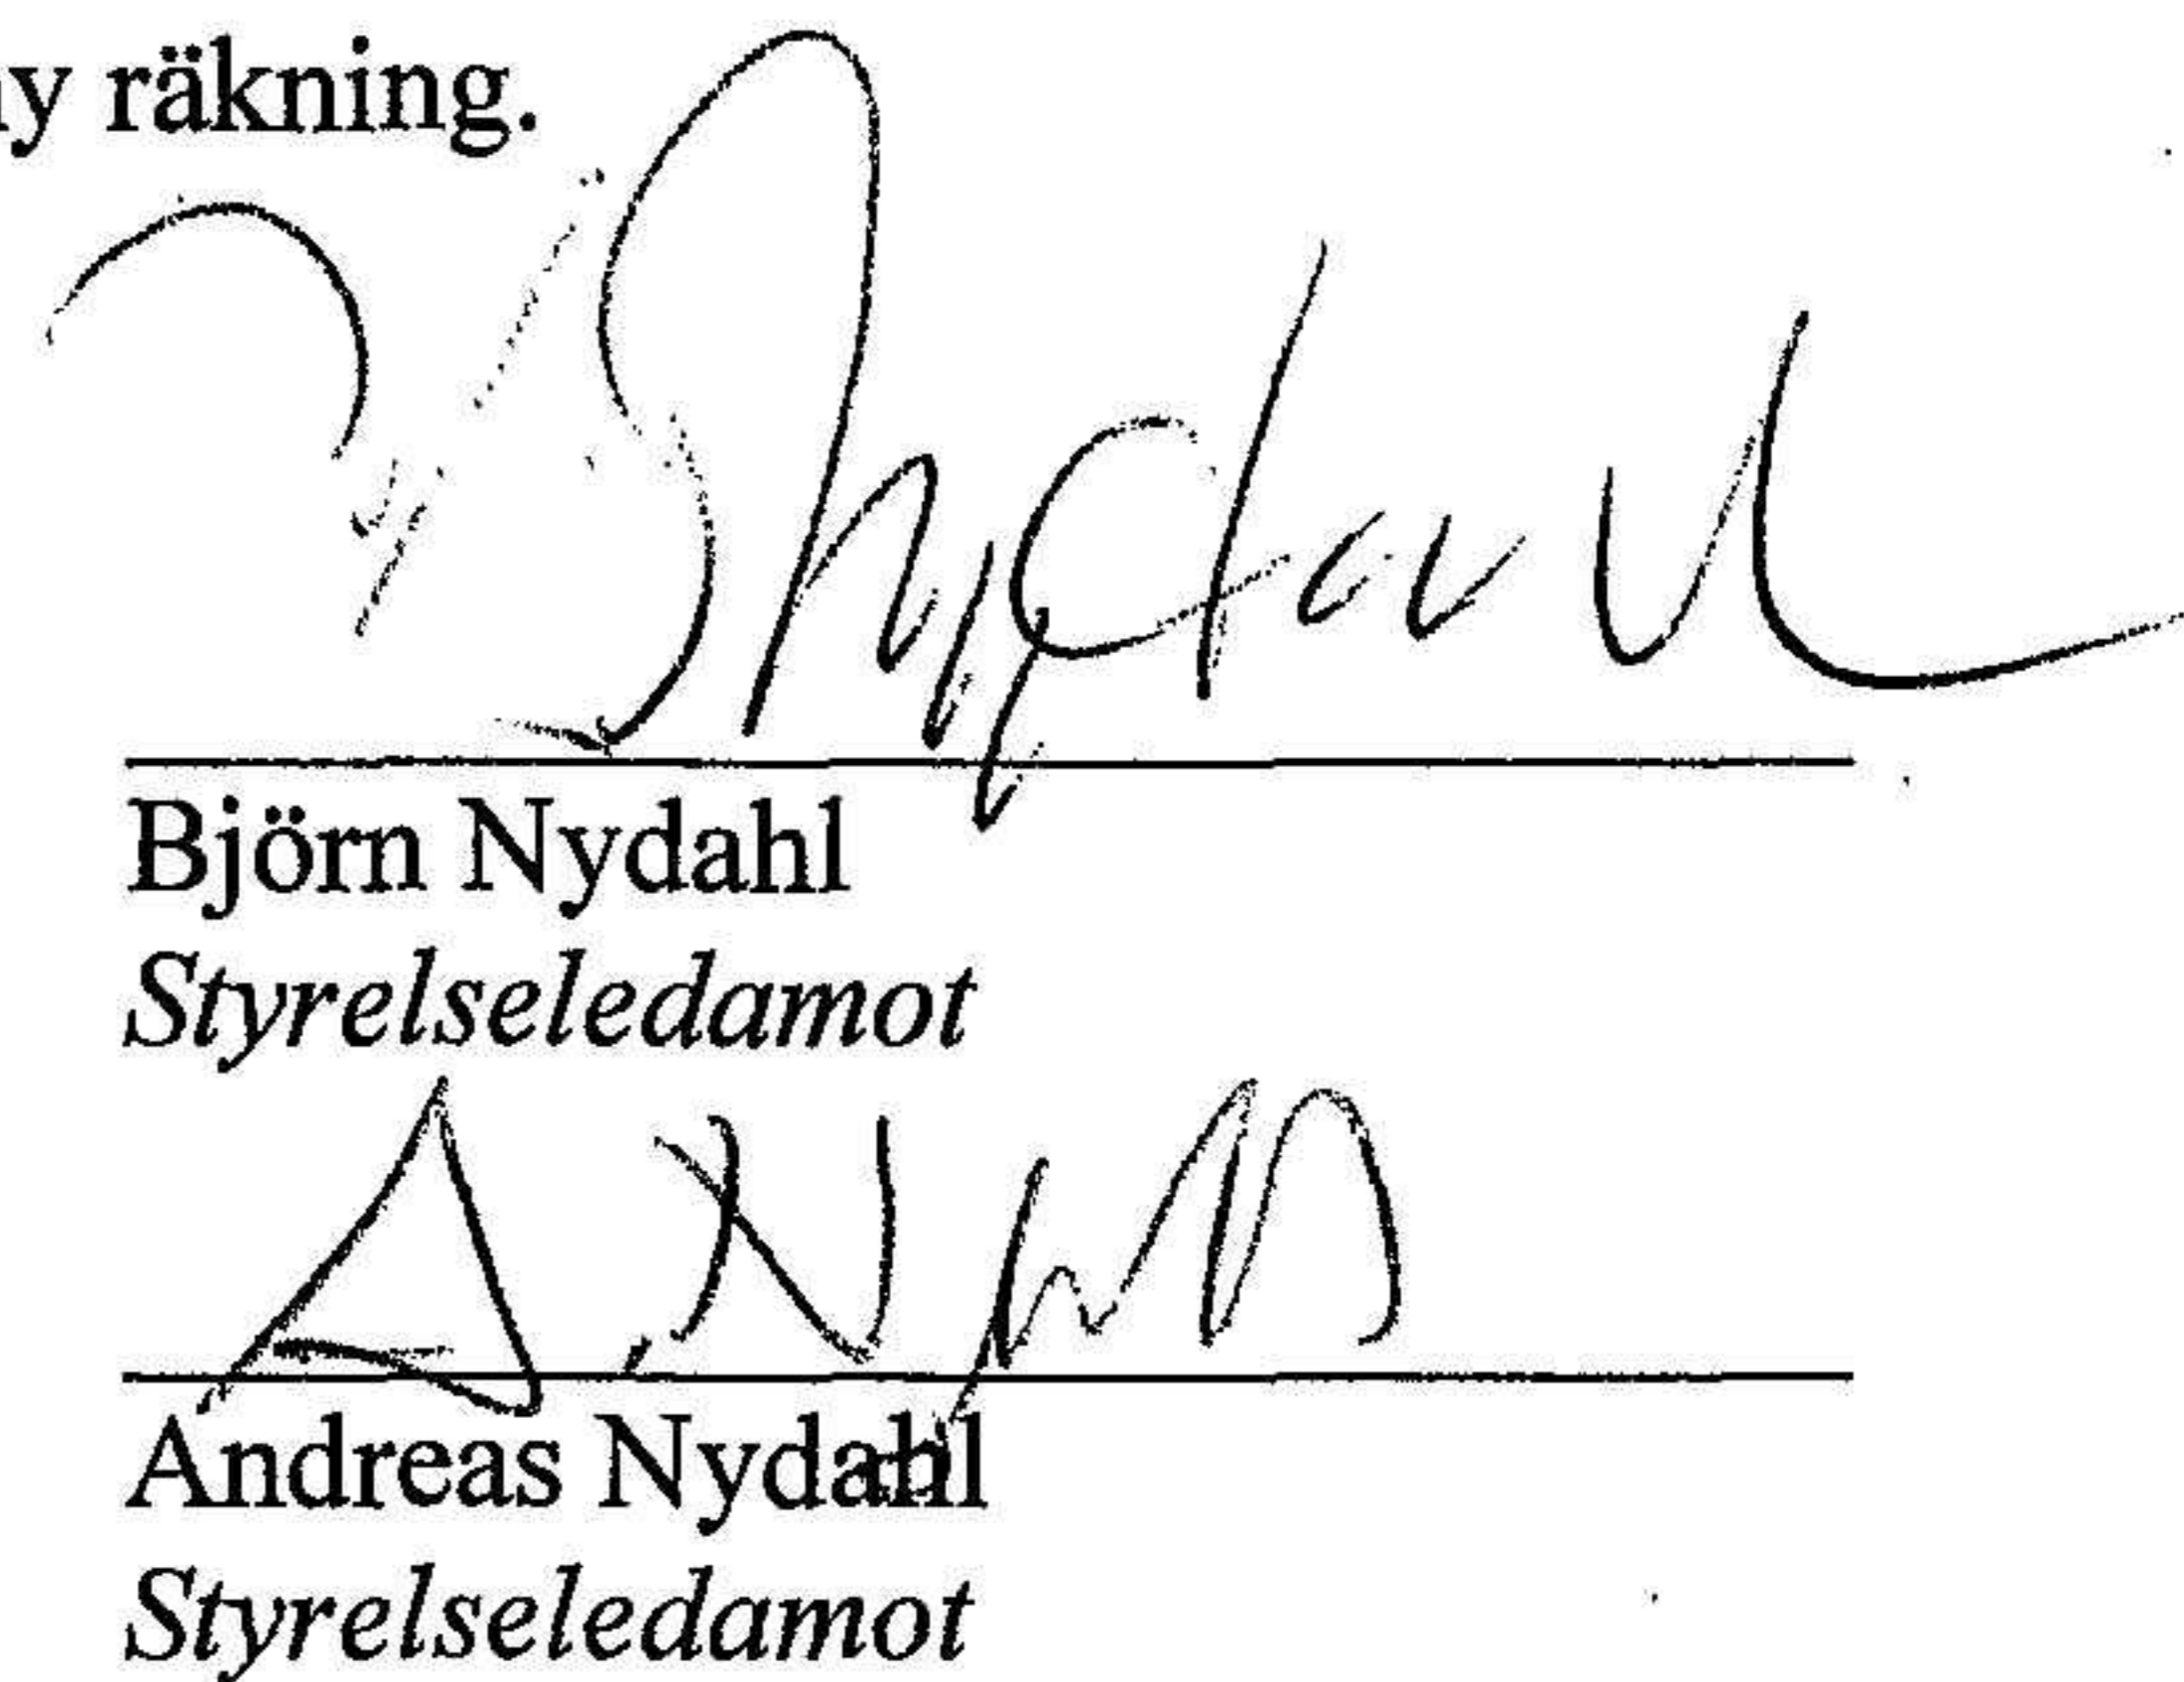 ny räkning.
Björn Nydahl
Styrelseledamot
Andreas Nydahl
Styrelseledamot